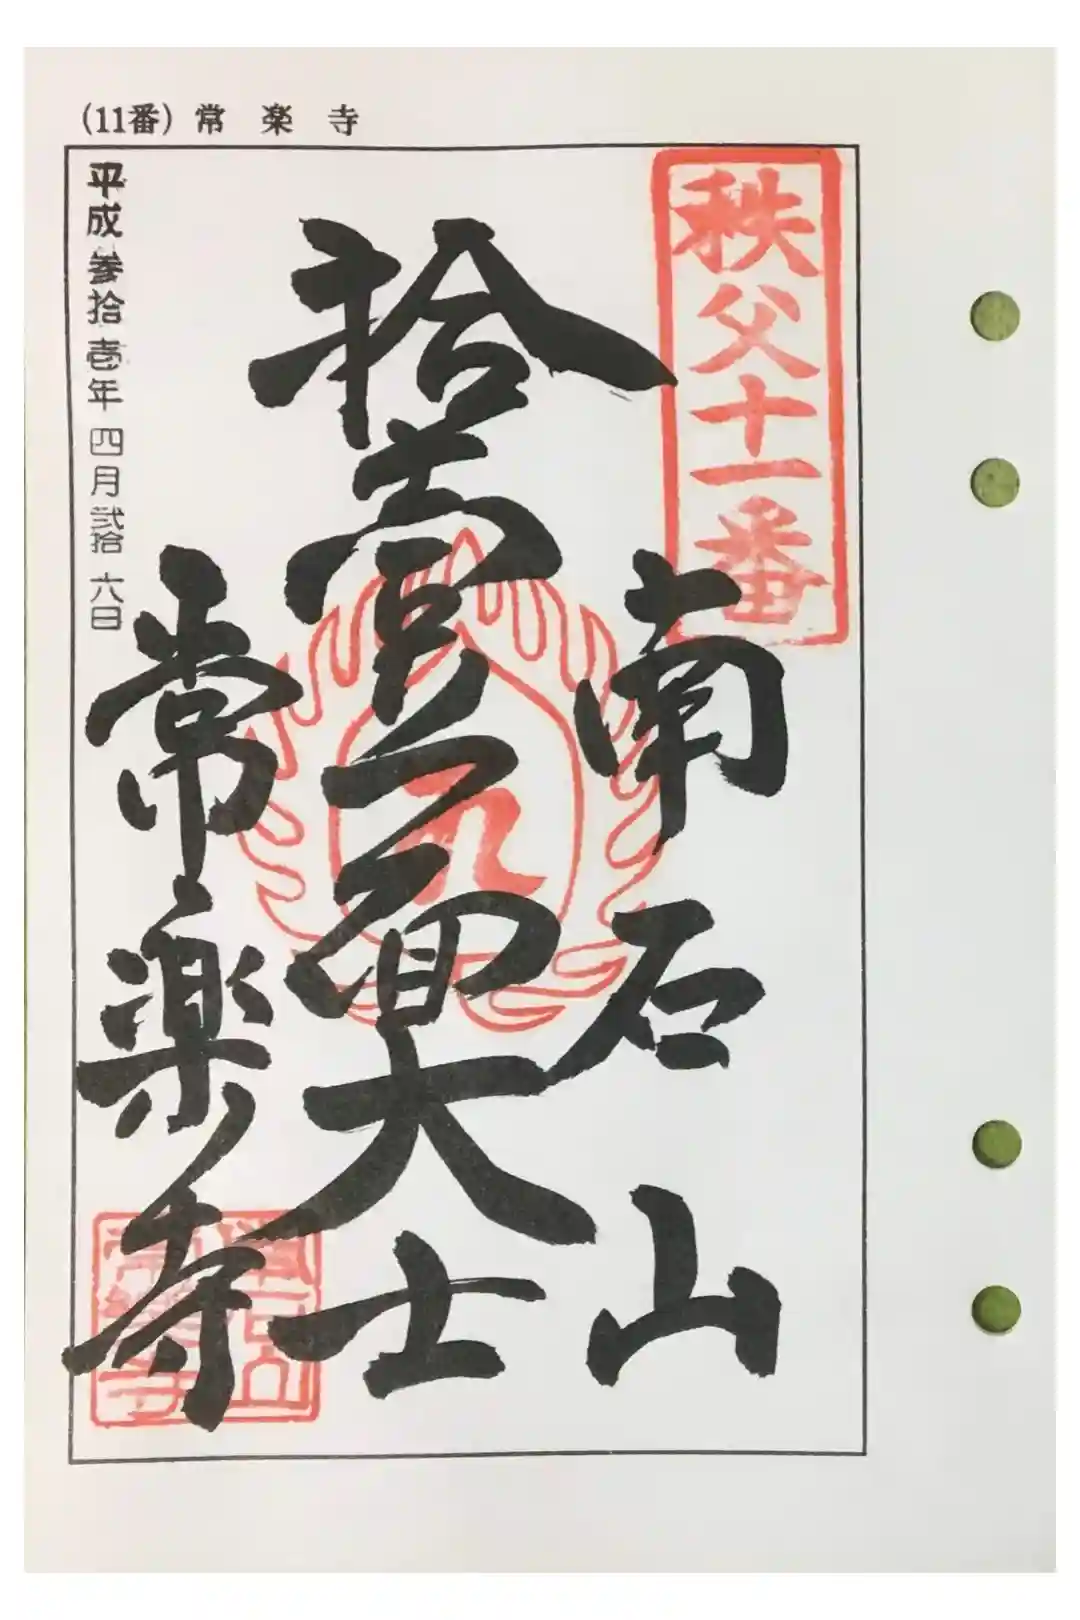 (11番) 常 楽 寺
秩父十一番
南石山
拾壹面大士
常楽寺
平成参拾壱年四月弐拾六日